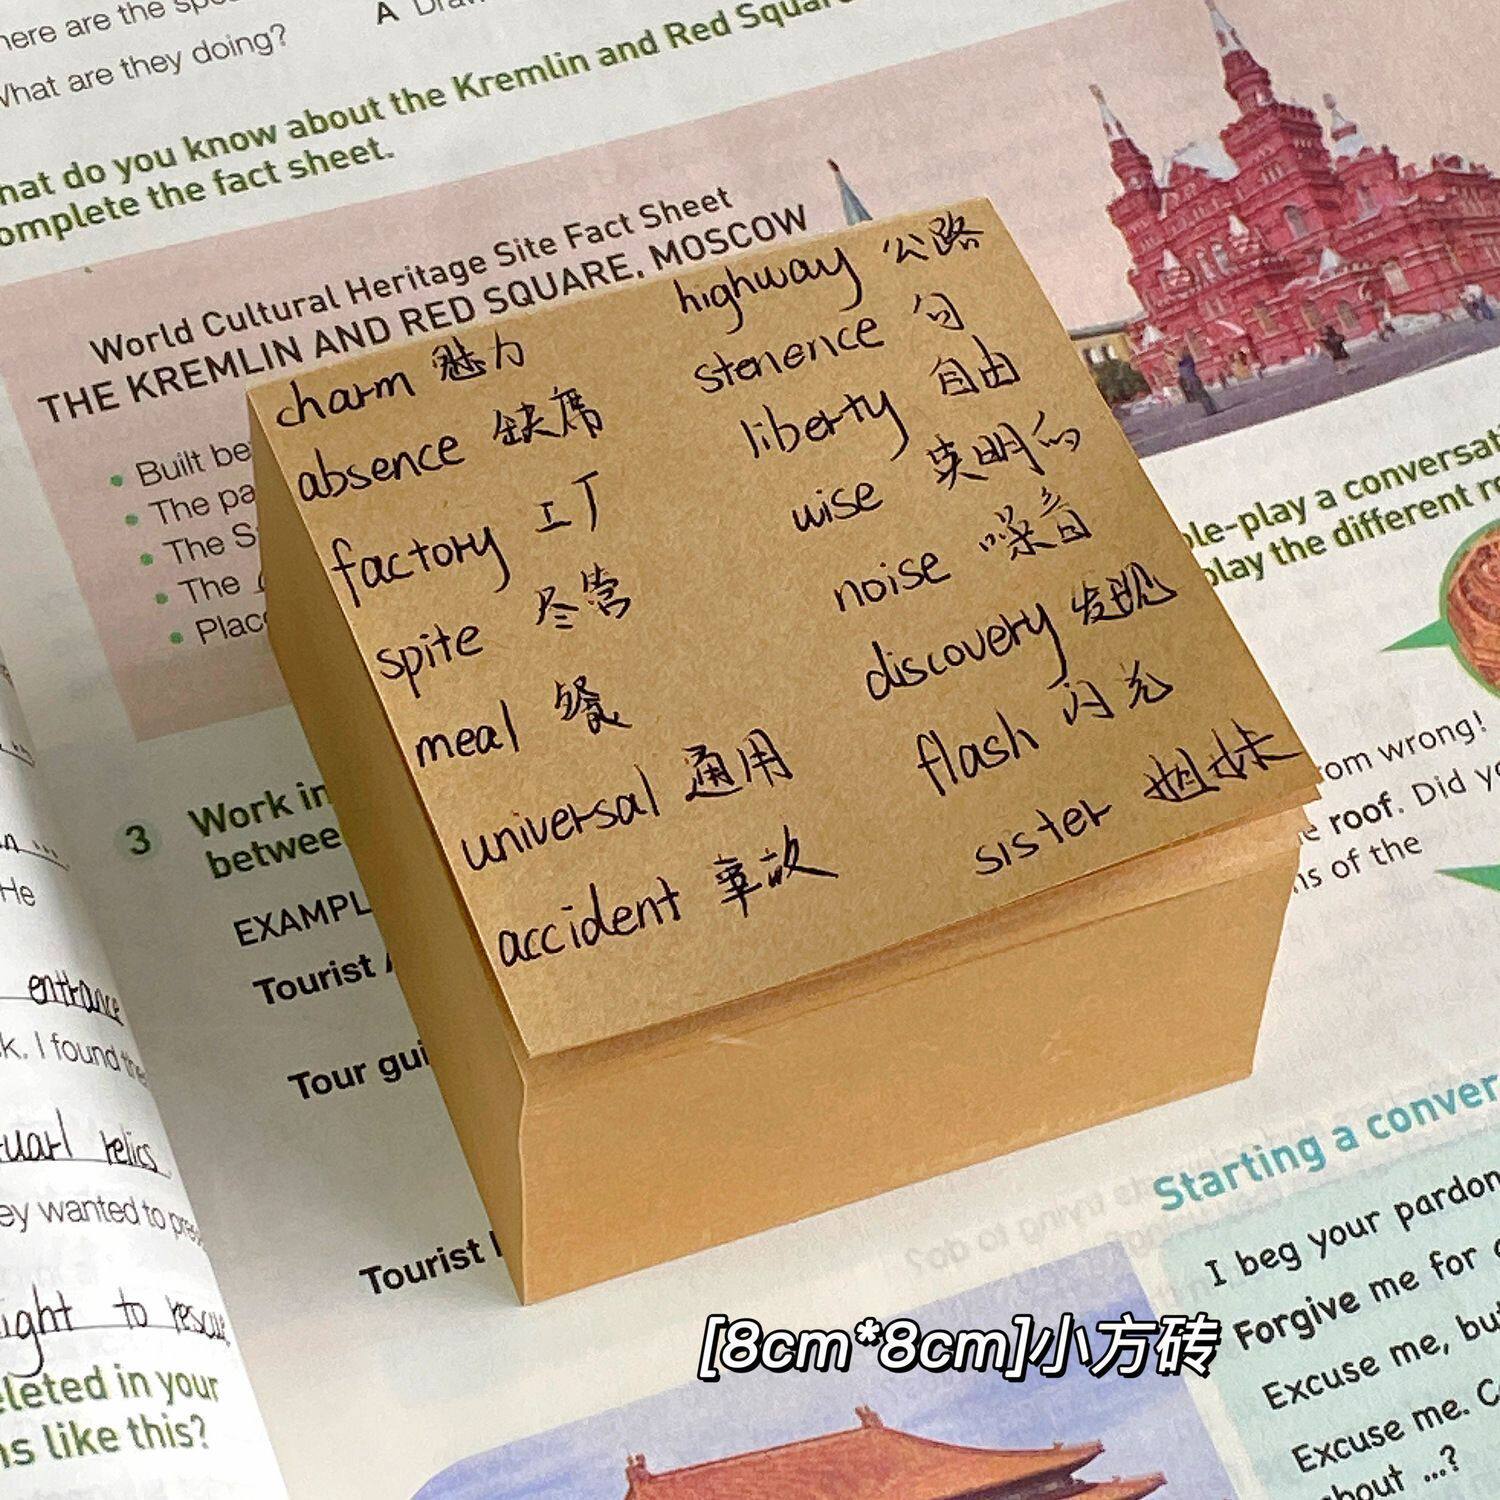 A
What are they doing?
hat do you know about the Kremlin and Red Square
omplete the fact sheet.
World Cultural Heritage Site Fact Sheet
THE KREMLIN AND RED SQUARE, MOSCOW
Built be
The pa
The S
The
Plac
charm 魅力
absence 缺席
factory 工厂
spite 尽管
meal 餐
universal 通用
accident 事故
highway 公路
stenence 句
liberty 自由
wise 英明的
noise 噪音
discovery 发现
flash 闪光
sister 姐妹
ole-play a conversati
play the different r
rom wrong!
e roof. Did y
ns of the
3 Work in
betwee
EXAMPL
Tourist
Tour gui
Tourist
He
entrance
k. I found the
relics
ey wanted to pres
ight to rescue
eleted in your
ns like this?
[8cm*8cm]小方砖
Starting a conver
I beg your pardon
Forgive me for
Excuse me, bu
Excuse me. C
about ...?